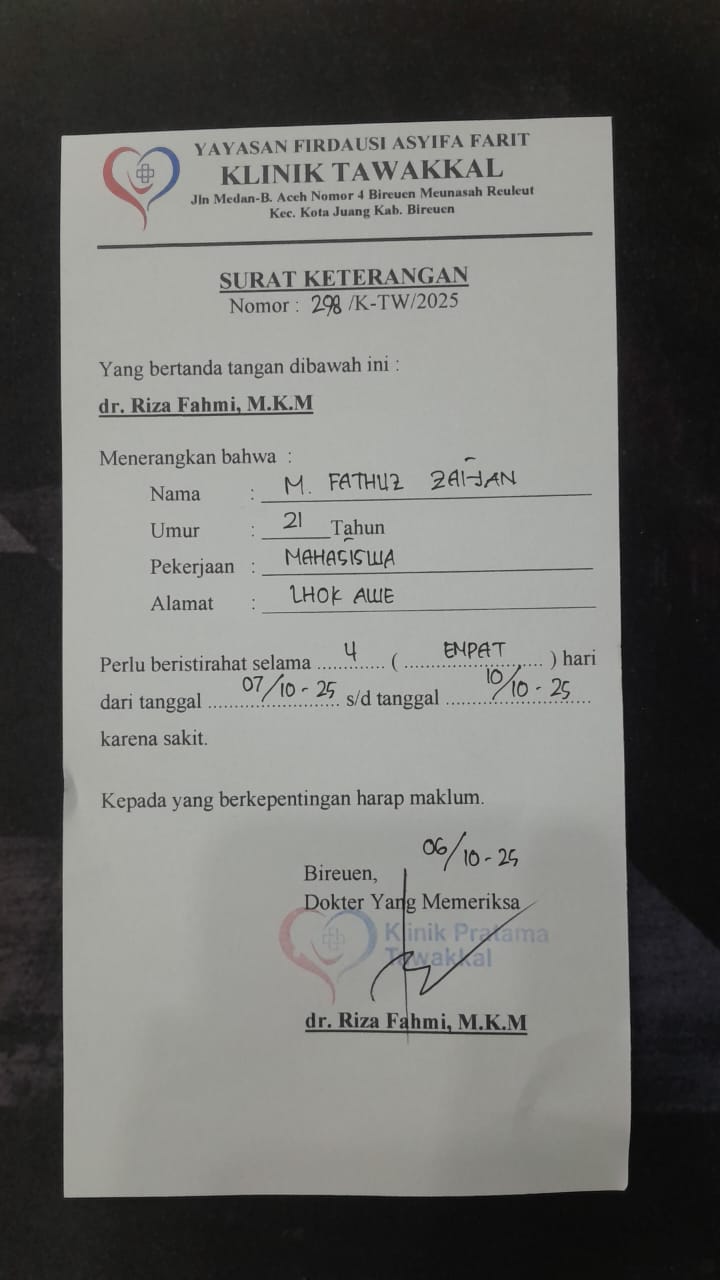 YAYASAN FIRDAUSI ASYIFA FARIT
KLINIK TAWAKKAL
Jln Medan-B. Aceh Nomor 4 Bireuen Meunasah Reuleut
Kec. Kota Juang Kab. Bireuen
SURAT KETERANGAN
Nomor : 298 /K-TW/2025
Yang bertanda tangan dibawah ini :
dr. Riza Fahmi, M.K.M
Menerangkan bahwa :
Nama : M. FATHUZ
Umur : 21 Tahun
Pekerjaan : MAHASISWA
Alamat : LHOK AWE
Perlu beristirahat selama ............. 4 ( ........ EMPAT ........ ) hari
dari tanggal ........ 07/10-25 ........ s/d tanggal ........ 10/10-25 ........
karena sakit.
Kepada yang berkepentingan harap maklum.
Bireuen, 06/10-25
Dokter Yang Memeriksa
Klinik Pratama
Tawakkal
dr. Riza Fahmi, M.K.M